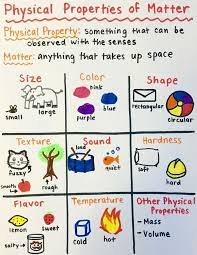 Physical Properties of Matter
Physical Property: Something that can be
observed with the senses
Matter: anything that takes up space
Size
small
large
Color
pink
purple
blue
Shape
rectangular
circular
Texture
fuzzy
smooth
rough
Sound
loud
quiet
Hardness
soft
hard
Flavor
lemon
sweet
salty
Temperature
cold
hot
Other Physical
Properties
- Mass
- Volume